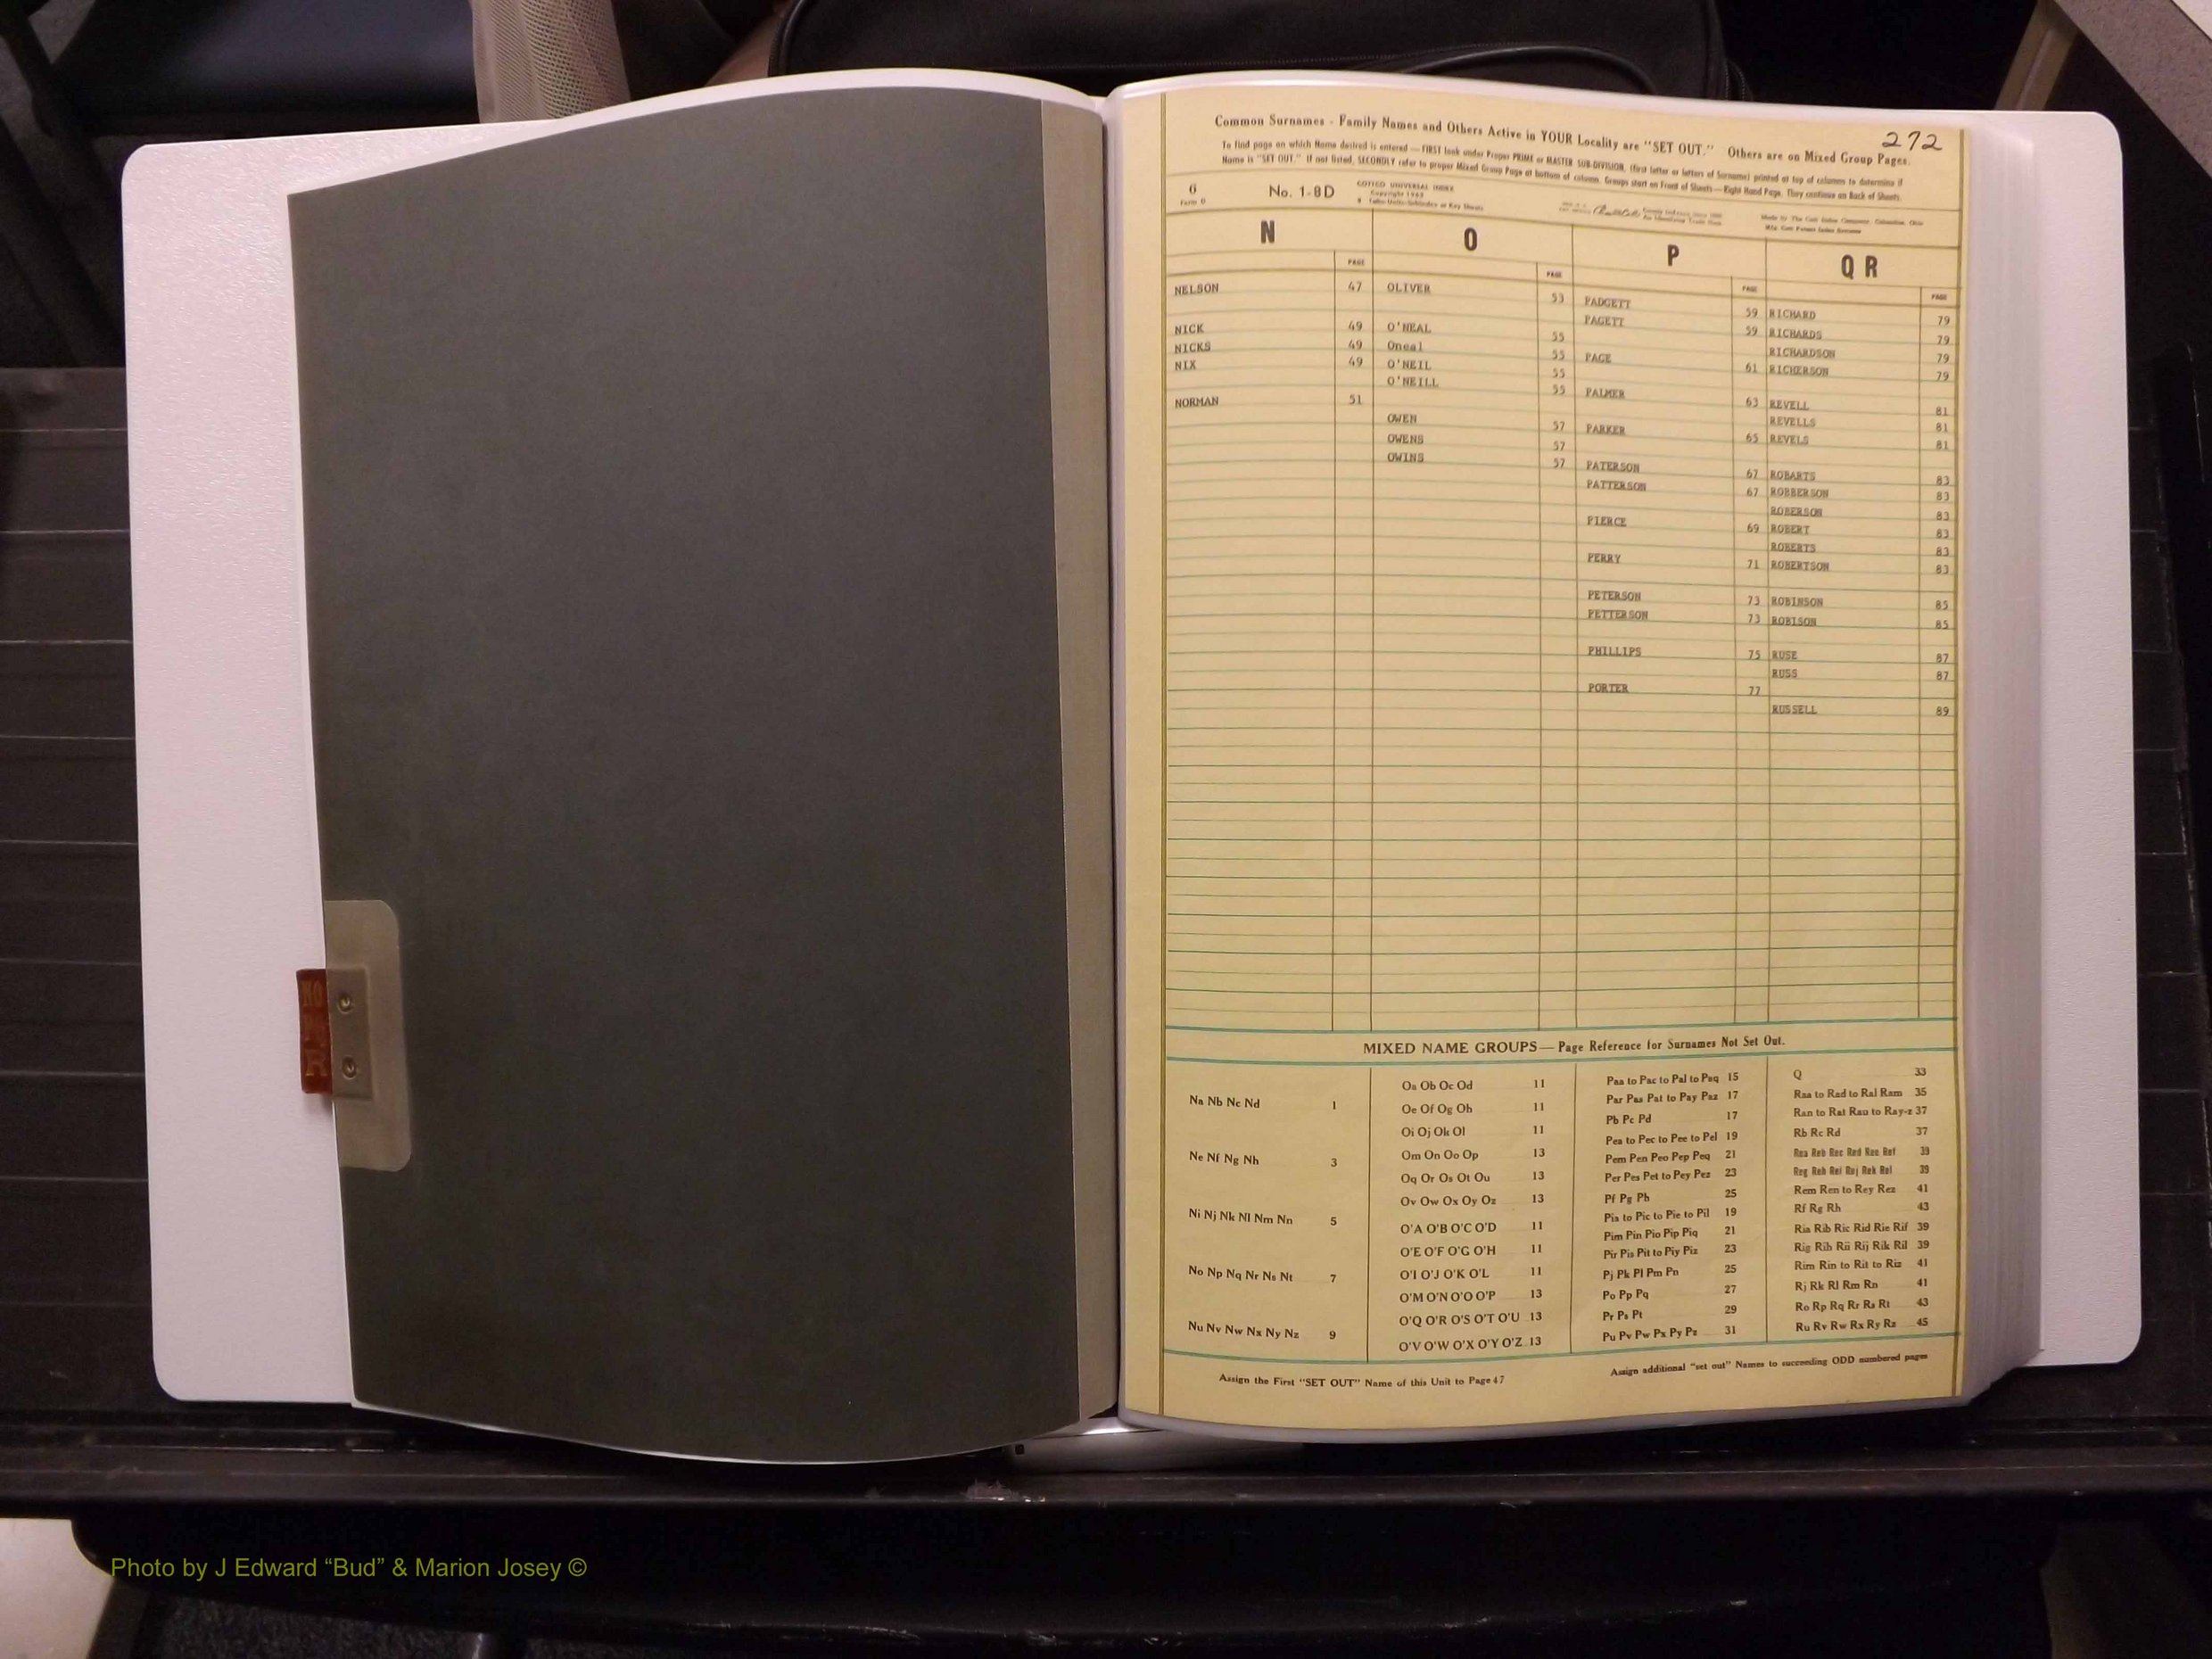 272
Common Surnames - Family Names and Others Active in YOUR Locality are "SET OUT." Others are on Mixed Group Pages.
To find page on which Name desired is entered — FIRST look under Proper PRIME or MASTER SUB-DIVISION, (first letter or letters of Surname) printed at top of columns to determine if
Name is "SET OUT." If not listed, SECONDLY refer to proper Mixed Group Page at bottom of column. Groups start on Front of Sheets—Right Hand Page. They continue on Back of Sheets.
6
Form 0
No. 1-8D
COTTCO UNIVERSAL INDEX
N
PAGE
NELSON 47
NICK 49
NICKS 49
NIX 49
NORMAN 51
O
PAGE
OLIVER 53
O'NEAL 55
Oneal 55
O'NEIL 55
O'NEILL 55
OWEN 57
OWENS 57
OWINS 57
P
PAGE
PADGETT 59
PAGETT 59
PAGE 61
PALMER 63
PARKER 65
PATERSON 67
PATTERSON 67
PIERCE 69
PERRY 71
PETERSON 73
PETTERSON 73
PHILLIPS 75
PORTER 77
Q R
PAGE
RICHARD 79
RICHARDS 79
RICHARDSON 79
RICHERSON 79
REVELL 81
REVELLS 81
REVELS 81
ROBARTS 83
ROBBERSON 83
ROBERSON 83
ROBERT 83
ROBERTS 83
ROBERTSON 83
ROBINSON 85
ROBISON 85
RUSE 87
RUSS 87
RUSSELL 89
MIXED NAME GROUPS— Page Reference for Surnames Not Set Out.
Na Nb Nc Nd 1
Ne Nf Ng Nh 3
Ni Nj Nk Nl Nm Nn 5
No Np Nq Nr Ns Nt 7
Nu Nv Nw Nx Ny Nz 9
Oa Ob Oc Od 11
Oe Of Og Oh 11
Oi Oj Ok Ol 11
Om On Oo Op 13
Oq Or Os Ot Ou 13
Ov Ow Ox Oy Oz 13
O'A O'B O'C O'D 11
O'E O'F O'G O'H 11
O'I O'J O'K O'L 11
O'M O'N O'O O'P 13
O'Q O'R O'S O'T O'U 13
O'V O'W O'X O'Y O'Z 13
Paa to Pac to Pal to Paq 15
Par Pas Pat to Pay Paz 17
Pb Pc Pd 17
Pea to Pec to Pee to Pel 19
Pem Pen Peo Pep Peq 21
Per Pes Pet to Pey Pez 23
Pf Pg Ph 25
Pia to Pic to Pie to Pil 19
Pim Pin Pio Pip Piq 21
Pir Pis Pit to Piy Piz 23
Pj Pk Pl Pm Pn 25
Po Pp Pq 27
Pr Ps Pt 29
Pu Pv Pw Px Py Pz 31
Q 33
Raa to Rad to Ral Ram 35
Ran to Rat Rau to Ray-z 37
Rb Rc Rd 37
Rea Reb Rec Red Ree Ref 39
Reg Reh Rei Rej Rek Rel 39
Rem Ren to Rey Rez 41
Rf Rg Rh 43
Ria Rib Ric Rid Rie Rif 39
Rig Rih Rii Rij Rik Ril 39
Rim Rin to Rit to Riz 41
Rj Rk Rl Rm Rn 41
Ro Rp Rq Rr Rs Rt 43
Ru Rv Rw Rx Ry Rz 45
Assign the First "SET OUT" Name of this Unit to Page 47
Assign additional "set out" Names to succeeding ODD numbered pages
Photo by J Edward “Bud” & Marion Josey ©